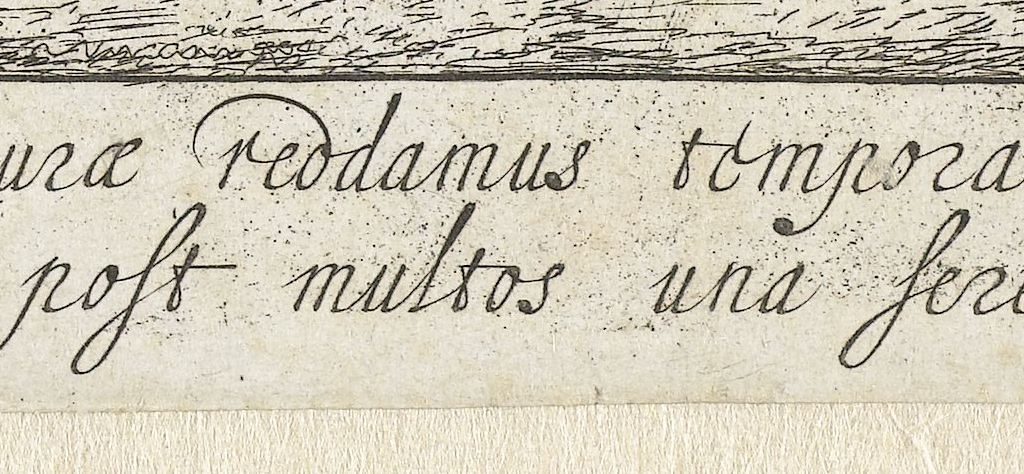 uræ reddamus tempora
post multos una sere